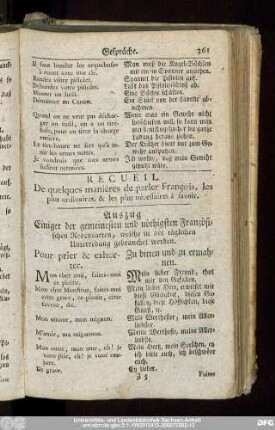 Gespräche. 361
Il faut bander les arquebuses
à rouet avec une clé.
Bandez votre pistolet.
Débandez votre pistolet.
Monter un fusil.
Démonter un Canon.
Quand on ne veut pas décharger
un fusil, on a un tire-
bale, pour en tirer la charge
entière.
Le tire-bourre ne sert qu'à
les armes nettes.
Je voudrais que mes armes
fussent nettoiées.
Man muß die Kugel-Büchsen
mit einem Spanner
Spannet die Pistolen auf.
Laßt das Pistolenschloß ab.
Eine Büchse schäften.
Ein Stück von der Lavette abnehmen.
Wenn man ein Gewehr nicht
losschiessen will, so kann man
die ganze
Ladung heraus ziehen.
Der Krätzer dient nur zum
Ich wollte, daß mein Gewehr
geputzt wäre.
RECUEIL
De quelques manières de parler François, les
plus ordinaires, & les plus nécessaires à savoir.
Auszug
Einiger der gemeinsten und nöthigsten Französischen
Redensarten, welche in der täglichen
Unterredung gebrauchet werden.
Pour prier & exhorter.
Mon cher ami, faites-moi
ce plaisir.
Mon cher Monsieur, faites-moi
cette grace, ce plaisir, cette
faveur, &c.
Mon amour, mon mignon.
M'amie, ma mignonne.
Mon cœur, mon ame, eh! je
vous prie, eh! je vous conjure.
De grace,
Zu bitten und zu ermahnen.
Mein lieber Freund, thut
mir den Gefallen.
Mein lieber Herr, erweiset mir
diese diesen Gefallen,
diese Höflichkeit, diese
Gunst, ꝛc.
Mein Werthester, mein Allerliebster.
Meine Wertheste, meine Allerliebste.
Mein Herz, mein Seelchen, ey
ich bitte euch, ich beschwöre
euch.
Ey lieber,
Z 5 Faites
Universitäts- und Landesbibliothek Sachsen-Anhalt
DFG